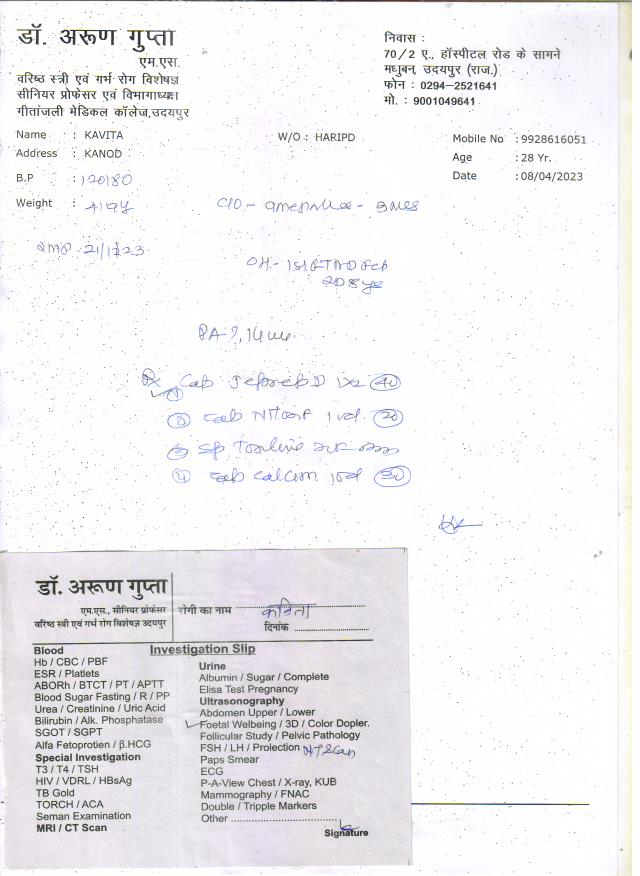 डॉ. अरूण गुप्ता
एम.एस.
वरिष्ठ स्त्री एवं गर्भ रोग विशेषज्ञ
सीनियर प्रोफेसर एवं विभागाध्यक्ष
गीतांजली मेडिकल कॉलेज,उदयपुर
निवास :
70/2 ए., हॉस्पीटल रोड के सामने
मधुबन, उदयपुर (राज.)
फोन : 0294-2521641
मो. : 9001049641
Name : KAVITA W/O : HARIPD Mobile No :9928616051
Address : KANOD Age :28 Yr.
B.P : 120/80 Date :08/04/2023
Weight :
C/O -
LMP 21/1/23
OH -
PA
Rx
① 40
② 1 od 20
③ Sp
④ Calcium 1 od 30
डॉ. अरूण गुप्ता
एम.एस., सीनियर प्रोफेसर
वरिष्ठ स्त्री एवं गर्भ रोग विशेषज्ञ उदयपुर
रोगी का नाम कविता
दिनांक
Investigation Slip
Blood
Hb / CBC / PBF
ESR / Platlets
ABORh / BTCT / PT / APTT
Blood Sugar Fasting / R / PP
Urea / Creatinine / Uric Acid
Bilirubin / Alk. Phosphatase
SGOT / SGPT
Alfa Fetoprotien / β.HCG
Special Investigation
T3 / T4 / TSH
HIV / VDRL / HBsAg
TB Gold
TORCH / ACA
Seman Examination
MRI / CT Scan
Urine
Albumin / Sugar / Complete
Elisa Test Pregnancy
Ultrasonography
Abdomen Upper / Lower
Foetal Welbeing / 3D / Color Dopler.
Follicular Study / Pelvic Pathology
FSH / LH / Prolection NT Scan
Paps Smear
ECG
P-A-View Chest / X-ray, KUB
Mammography / FNAC
Double / Tripple Markers
Other ................................
Signature